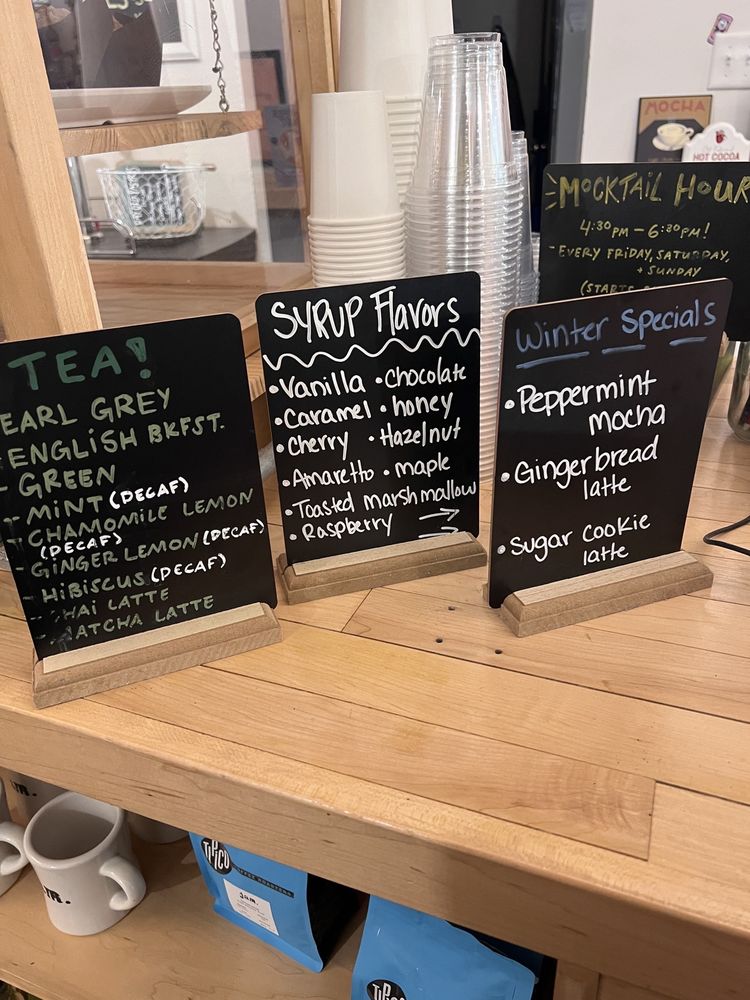 TEA!
EARL GREY
- ENGLISH BKFST.
- GREEN
- MINT (DECAF)
- CHAMOMILE LEMON
(DECAF)
- GINGER LEMON (DECAF)
- HIBISCUS (DECAF)
- CHAI LATTE
- MATCHA LATTE
SYRUP Flavors
• Vanilla • Chocolate
• Caramel • honey
• Cherry • Hazelnut
• Amaretto • maple
• Toasted marshmallow
• Raspberry →
Winter Specials
• Peppermint
mocha
• Gingerbread
latte
• Sugar cookie
latte
MOCKTAIL HOUR
4:30PM – 6:30PM!
- EVERY FRIDAY, SATURDAY,
+ SUNDAY
(STARTS
MOCHA
HOT COCOA
TIPICO
COFFEE ROASTERS
JAM.
TIPICO